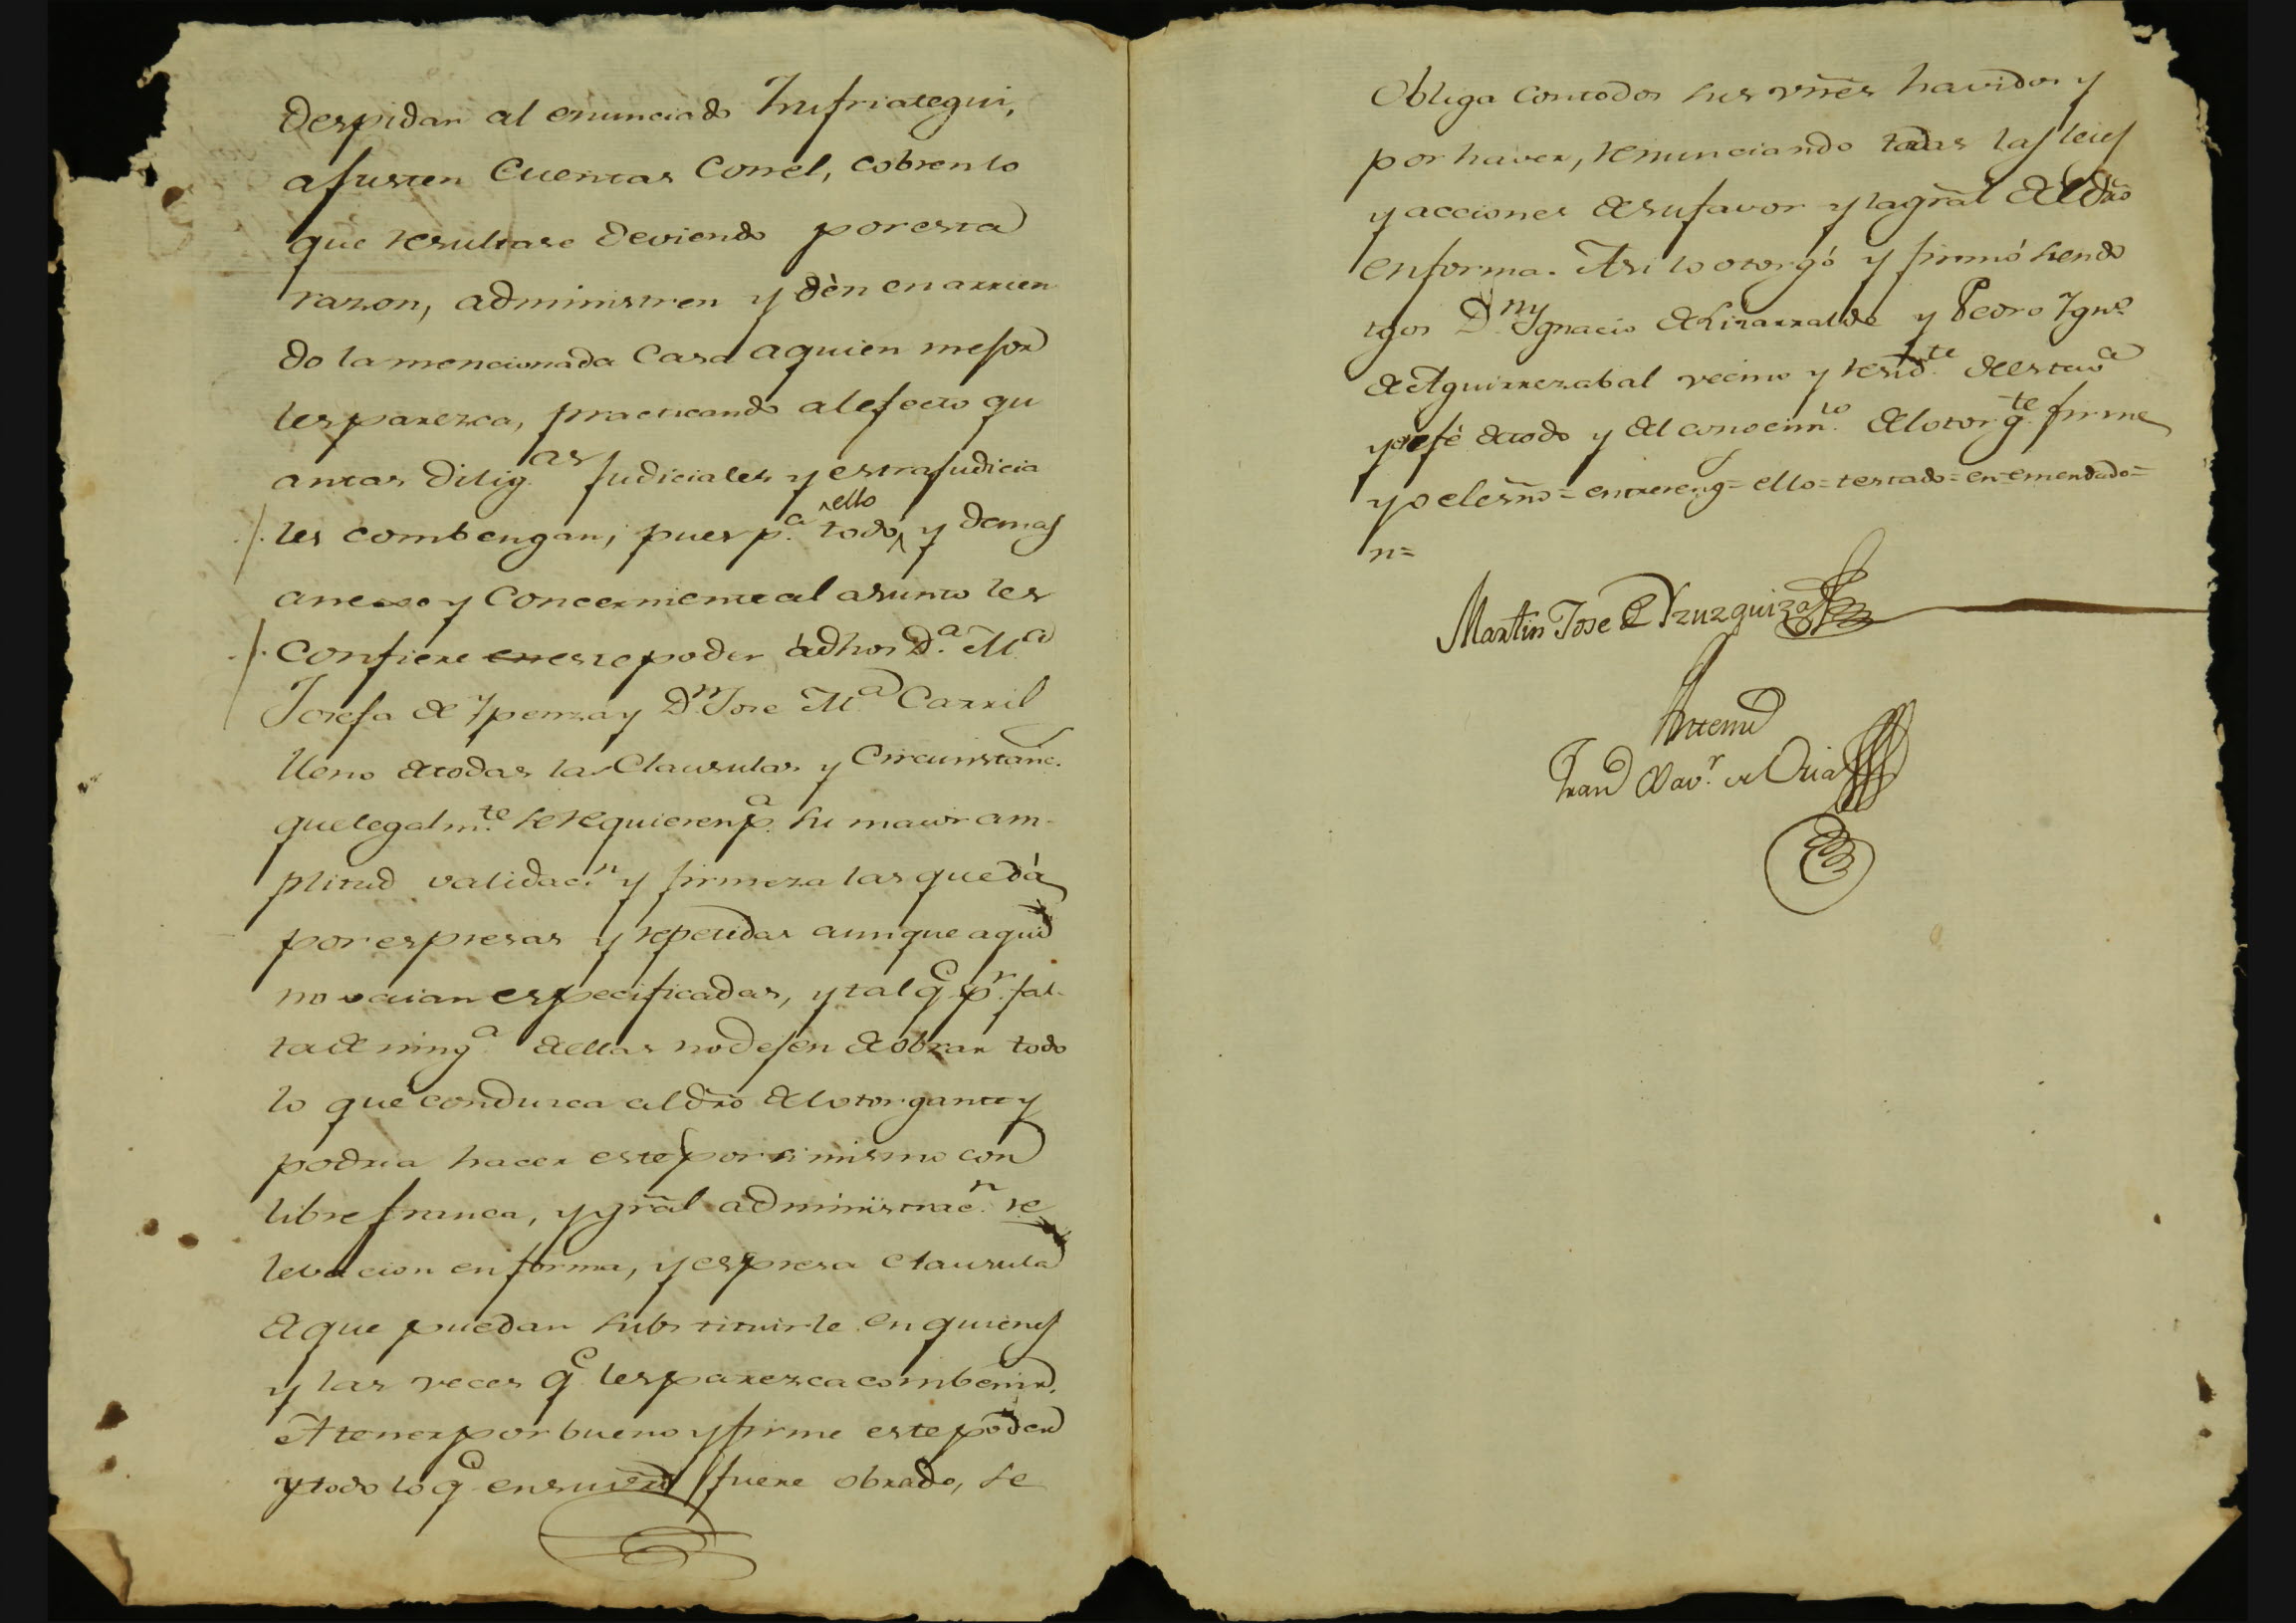 despidan al enunciado Irufriategui,
ajusten Cuentas Conel, cobren lo
que resultase deviendo por esta
razon, administren y dèn en arrien
do la mencionada Casa aquien mejor
les parezca, practicando al efecto qu
antas dilig.as judiciales y estrajudicia
les combengan, pues p.a todo ello y demas
anexo y Concerniente al asunto les
Confiere en este poder ádhos D.a M.a
Josefa de Ypenza y D.n Jose M.a Carril
lleno de todas las Clausulas y Circunstanc.
que legalm.te se requieren p.a su maior am-
plitud validac.n y firmeza las que dá
por espresas y repetidas aunque aqui
no vaian especificadas, y tal q.e p.r fal-
ta de ning.a de ellas no dejen de obrar todo
lo que condusca al dro del otorgante y
podria hacer este por si mismo con
libre franca, y gral administrac.n re
levacion en forma, y espresa clausula
de que puedan substituirle en quienes
y las veces q.e les parezca combenir.
A tener por bueno y firme este poder
y todo lo q.e en su vrd fuere obrado, se
Obliga con todos sus vnes havidos y
por haver, renunciando todas las leies
y acciones de su favor y la gral del dro
en forma. Asi lo otorgó y firmó siendo
tgos D.n Ygnacio de Lizarralde y Pedro Ygn.o
de Aguirrezabal vecino y resid.te de esta v.a
y de fé de todo y del conocim.to del otorg.te firme
yo el esño = entrereng = ello = testado = en = emendado =
n =
Martin Jose de Yzuzquiza
Ante mi
Fran Xav.r de Oria